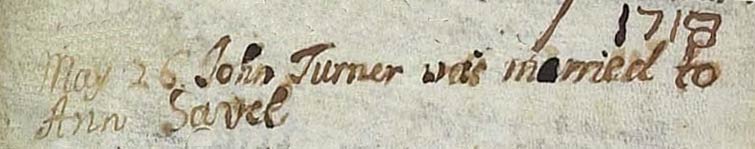 1718
May 26 John Turner was married to
Ann Savel